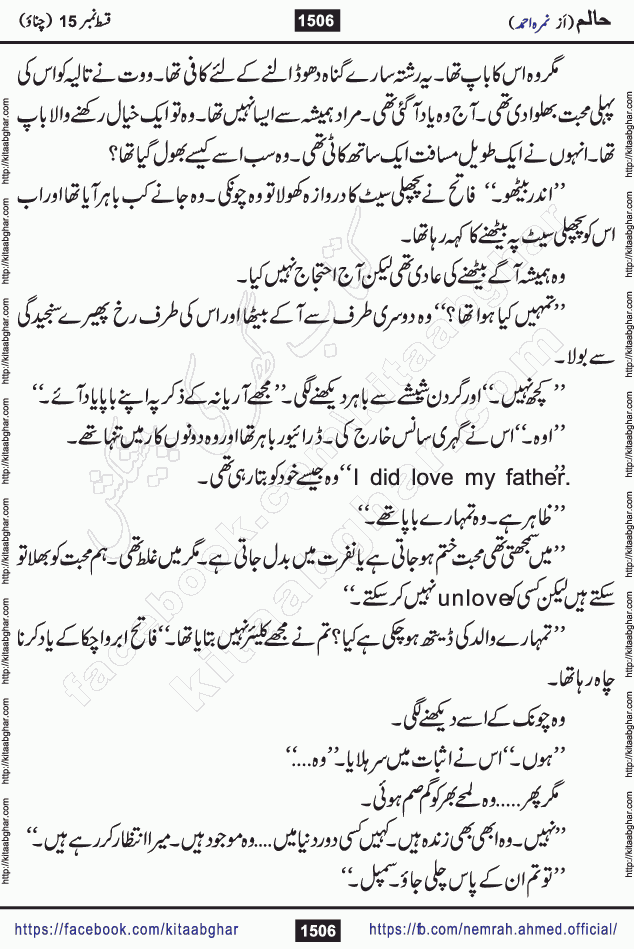 حالم (از نمرہ احمد)
1506
قسط نمبر 15 (چناؤ)
مگر وہ اس کا باپ تھا۔ یہ رشتہ سارے گناہ دھو ڈالنے کے لئے کافی تھا۔ ووت نے تالیہ کو اس کی
پہلی محبت بھلوا دی تھی۔ آج وہ یاد آ گئی تھی۔ مراد ہمیشہ سے ایسا نہیں تھا۔ وہ تو ایک خیال رکھنے والا باپ
تھا۔ انہوں نے ایک طویل مسافت ایک ساتھ کاٹی تھی۔ وہ سب اسے کیسے بھول گیا تھا؟
’’اندر بیٹھو۔‘‘ فاتح نے پچھلی سیٹ کا دروازہ کھولا تو وہ چونکی۔ وہ جانے کب باہر آیا تھا اور اب
اس کو پچھلی سیٹ پہ بیٹھنے کا کہہ رہا تھا۔
وہ ہمیشہ آگے بیٹھنے کی عادی تھی لیکن آج احتجاج نہیں کیا۔
’’تمہیں کیا ہوا تھا؟‘‘ وہ دوسری طرف سے آ کے بیٹھا اور اس کی طرف رخ پھیرے سنجیدگی
سے بولا۔
’’کچھ نہیں۔‘‘ اور گردن شیشے سے باہر دیکھنے لگی۔ ’’مجھے آریانہ کے ذکر پہ اپنے باپا یاد آئے۔‘‘
’’اوہ۔‘‘ اس نے گہری سانس خارج کی۔ ڈرائیور باہر تھا اور وہ دونوں کار میں تنہا تھے۔
’’I did love my father.‘‘ وہ جیسے خود کو بتا رہی تھی۔
’’ظاہر ہے۔ وہ تمہارے باپا تھے۔‘‘
’’میں سمجھتی تھی محبت ختم ہو جاتی ہے یا نفرت میں بدل جاتی ہے۔ مگر میں غلط تھی۔ ہم محبت کو بھلا تو
سکتے ہیں لیکن کسی کو unlove نہیں کر سکتے۔‘‘
’’تمہارے والد کی ڈیتھ ہو چکی ہے کیا؟ تم نے مجھے کلیئر نہیں بتایا تھا۔‘‘ فاتح ابرو اچکا کے یاد کرنا
چاہ رہا تھا۔
وہ چونک کے اسے دیکھنے لگی۔
’’ہوں۔‘‘ اس نے اثبات میں سر ہلایا۔ ’’وہ....‘‘
مگر پھر..... وہ لمحے بھر کو گم صم ہوئی۔
’’نہیں۔ وہ ابھی بھی زندہ ہیں۔ کہیں کسی دور دنیا میں .... وہ موجود ہیں۔ میرا انتظار کر رہے ہیں۔‘‘
’’تو تم ان کے پاس چلی جاؤ۔ سمپل۔‘‘
https://facebook.com/kitaabghar
1506
https://fb.com/nemrah.ahmed.official/
http://kitaabghar.com http://kitaabghar.com http://kitaabghar.com http://kitaabghar.com http://kitaabghar.com http://kitaabghar.com http://kitaabghar.com http://kitaabghar.com
http://kitaabghar.com http://kitaabghar.com http://kitaabghar.com http://kitaabghar.com http://kitaabghar.com http://kitaabghar.com http://kitaabghar.com http://kitaabghar.com
کتاب گھر کی پیشکش
facebook.com/kitaabghar
kitaabghar.com